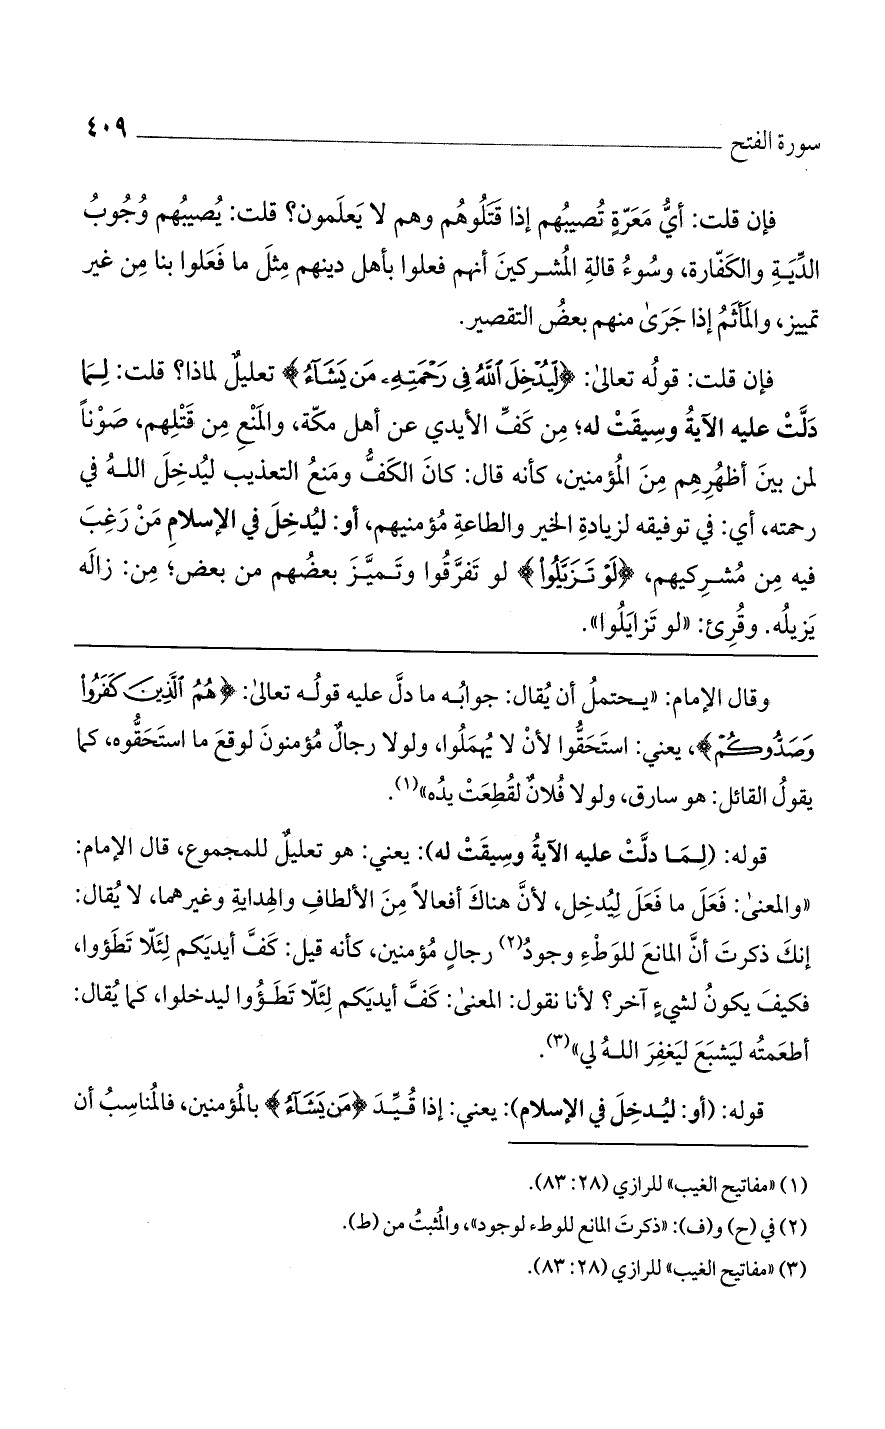 سورة الفتح ٤٠٩
فإن قلت: أيُّ مَعَرّةٍ تُصيبُهم إذا قَتَلُوهُم وهم لا يَعلَمون؟ قلت: يُصيبُهم وُجُوبُ
الدِّيَةِ والكَفّارة، وسُوءُ قالةِ المُشركينَ أنهم فعلوا بأهل دينهم مِثلَ ما فَعَلوا بنا مِن غير
تمييز، والمَأثَمُ إذا جَرَىٰ منهم بعضُ التقصير.
فإن قلت: قولُه تعالىٰ: ﴿لِيُدْخِلَ ٱللَّهُ فِى رَحْمَتِهِۦ مَن يَشَآءُ﴾ تعليلٌ لماذا؟ قلت: لِمَا
دَلَّتْ عليه الآيةُ وسِيقَتْ له؛ مِن كَفِّ الأيدي عن أهل مكّة، والمَنْعِ مِن قَتْلِهم، صَوْناً
لمن بينَ أظهُرِهم مِنَ المُؤمنين، كأنه قال: كانَ الكَفُّ ومَنعُ التعذيب ليُدخِلَ اللهُ في
رحمته، أي: في توفيقه لزيادةِ الخير والطاعةِ مُؤمنيهم، أو: ليُدخِلَ في الإسلامِ مَنْ رَغِبَ
فيه مِن مُشركيهم، ﴿لَوْ تَزَيَّلُوا۟﴾ لو تَفرَّقُوا وتَميَّزَ بعضُهم من بعض؛ مِن: زالَه
يَزيلُه. وقُرِئ: «لو تَزايَلُوا».
وقال الإمام: «يحتملُ أن يُقال: جوابُه ما دلَّ عليه قولُه تعالىٰ: ﴿هُمُ ٱلَّذِينَ كَفَرُوا۟
وَصَدُّوكُمْ﴾، يعني: استَحَقُّوا لأنْ لا يُهمَلُوا، ولولا رجالٌ مُؤمنونَ لوقعَ ما استَحَقُّوه، كما
يقولُ القائل: هو سارق، ولولا فُلانٌ لقُطِعَتْ يدُه»(١).
قوله: (لِمَا دلَّتْ عليه الآيةُ وسِيقَتْ له): يعني: هو تعليلٌ للمجموع، قال الإمام:
«والمعنىٰ: فَعَلَ ما فَعَلَ ليُدخِل، لأنَّ هناكَ أفعالاً مِنَ الألطافِ والهدايةِ وغيرهما، لا يُقال:
إنكَ ذكرتَ أنَّ المانعَ للوَطْءِ وجودُ(٢) رجالٍ مُؤمنين، كأنه قيل: كَفَّ أيديَكم لِئَلّا تَطَؤوا،
فكيفَ يكونُ لشيءٍ آخر؟ لأنا نقول: المعنىٰ: كَفَّ أيديَكم لِئَلّا تَطَؤُوا ليدخلوا، كما يُقال:
أطعَمتُه ليَشبَعَ ليَغفِرَ اللهُ لي»(٣).
قوله: (أو: ليُدخِلَ في الإسلام): يعني: إذا قُيِّدَ ﴿مَن يَشَآءُ﴾ بالمُؤمنين، فالمُناسِبُ أن
(١) «مفاتيح الغيب» للرازي (٢٨: ٨٣).
(٢) في (ح) و(ف): «ذكرتَ المانع للوطء لوجود»، والمُثبتُ من (ط).
(٣) «مفاتيح الغيب» للرازي (٢٨: ٨٣).